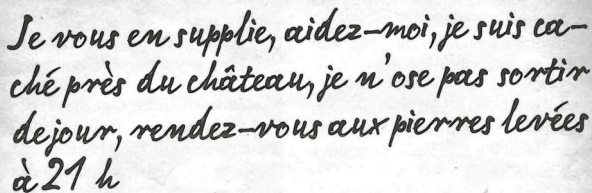 Je vous en supplie, aidez-moi, je suis ca-
ché près du château, je n'ose pas sortir
de jour, rendez-vous aux pierres levées
à 21 h